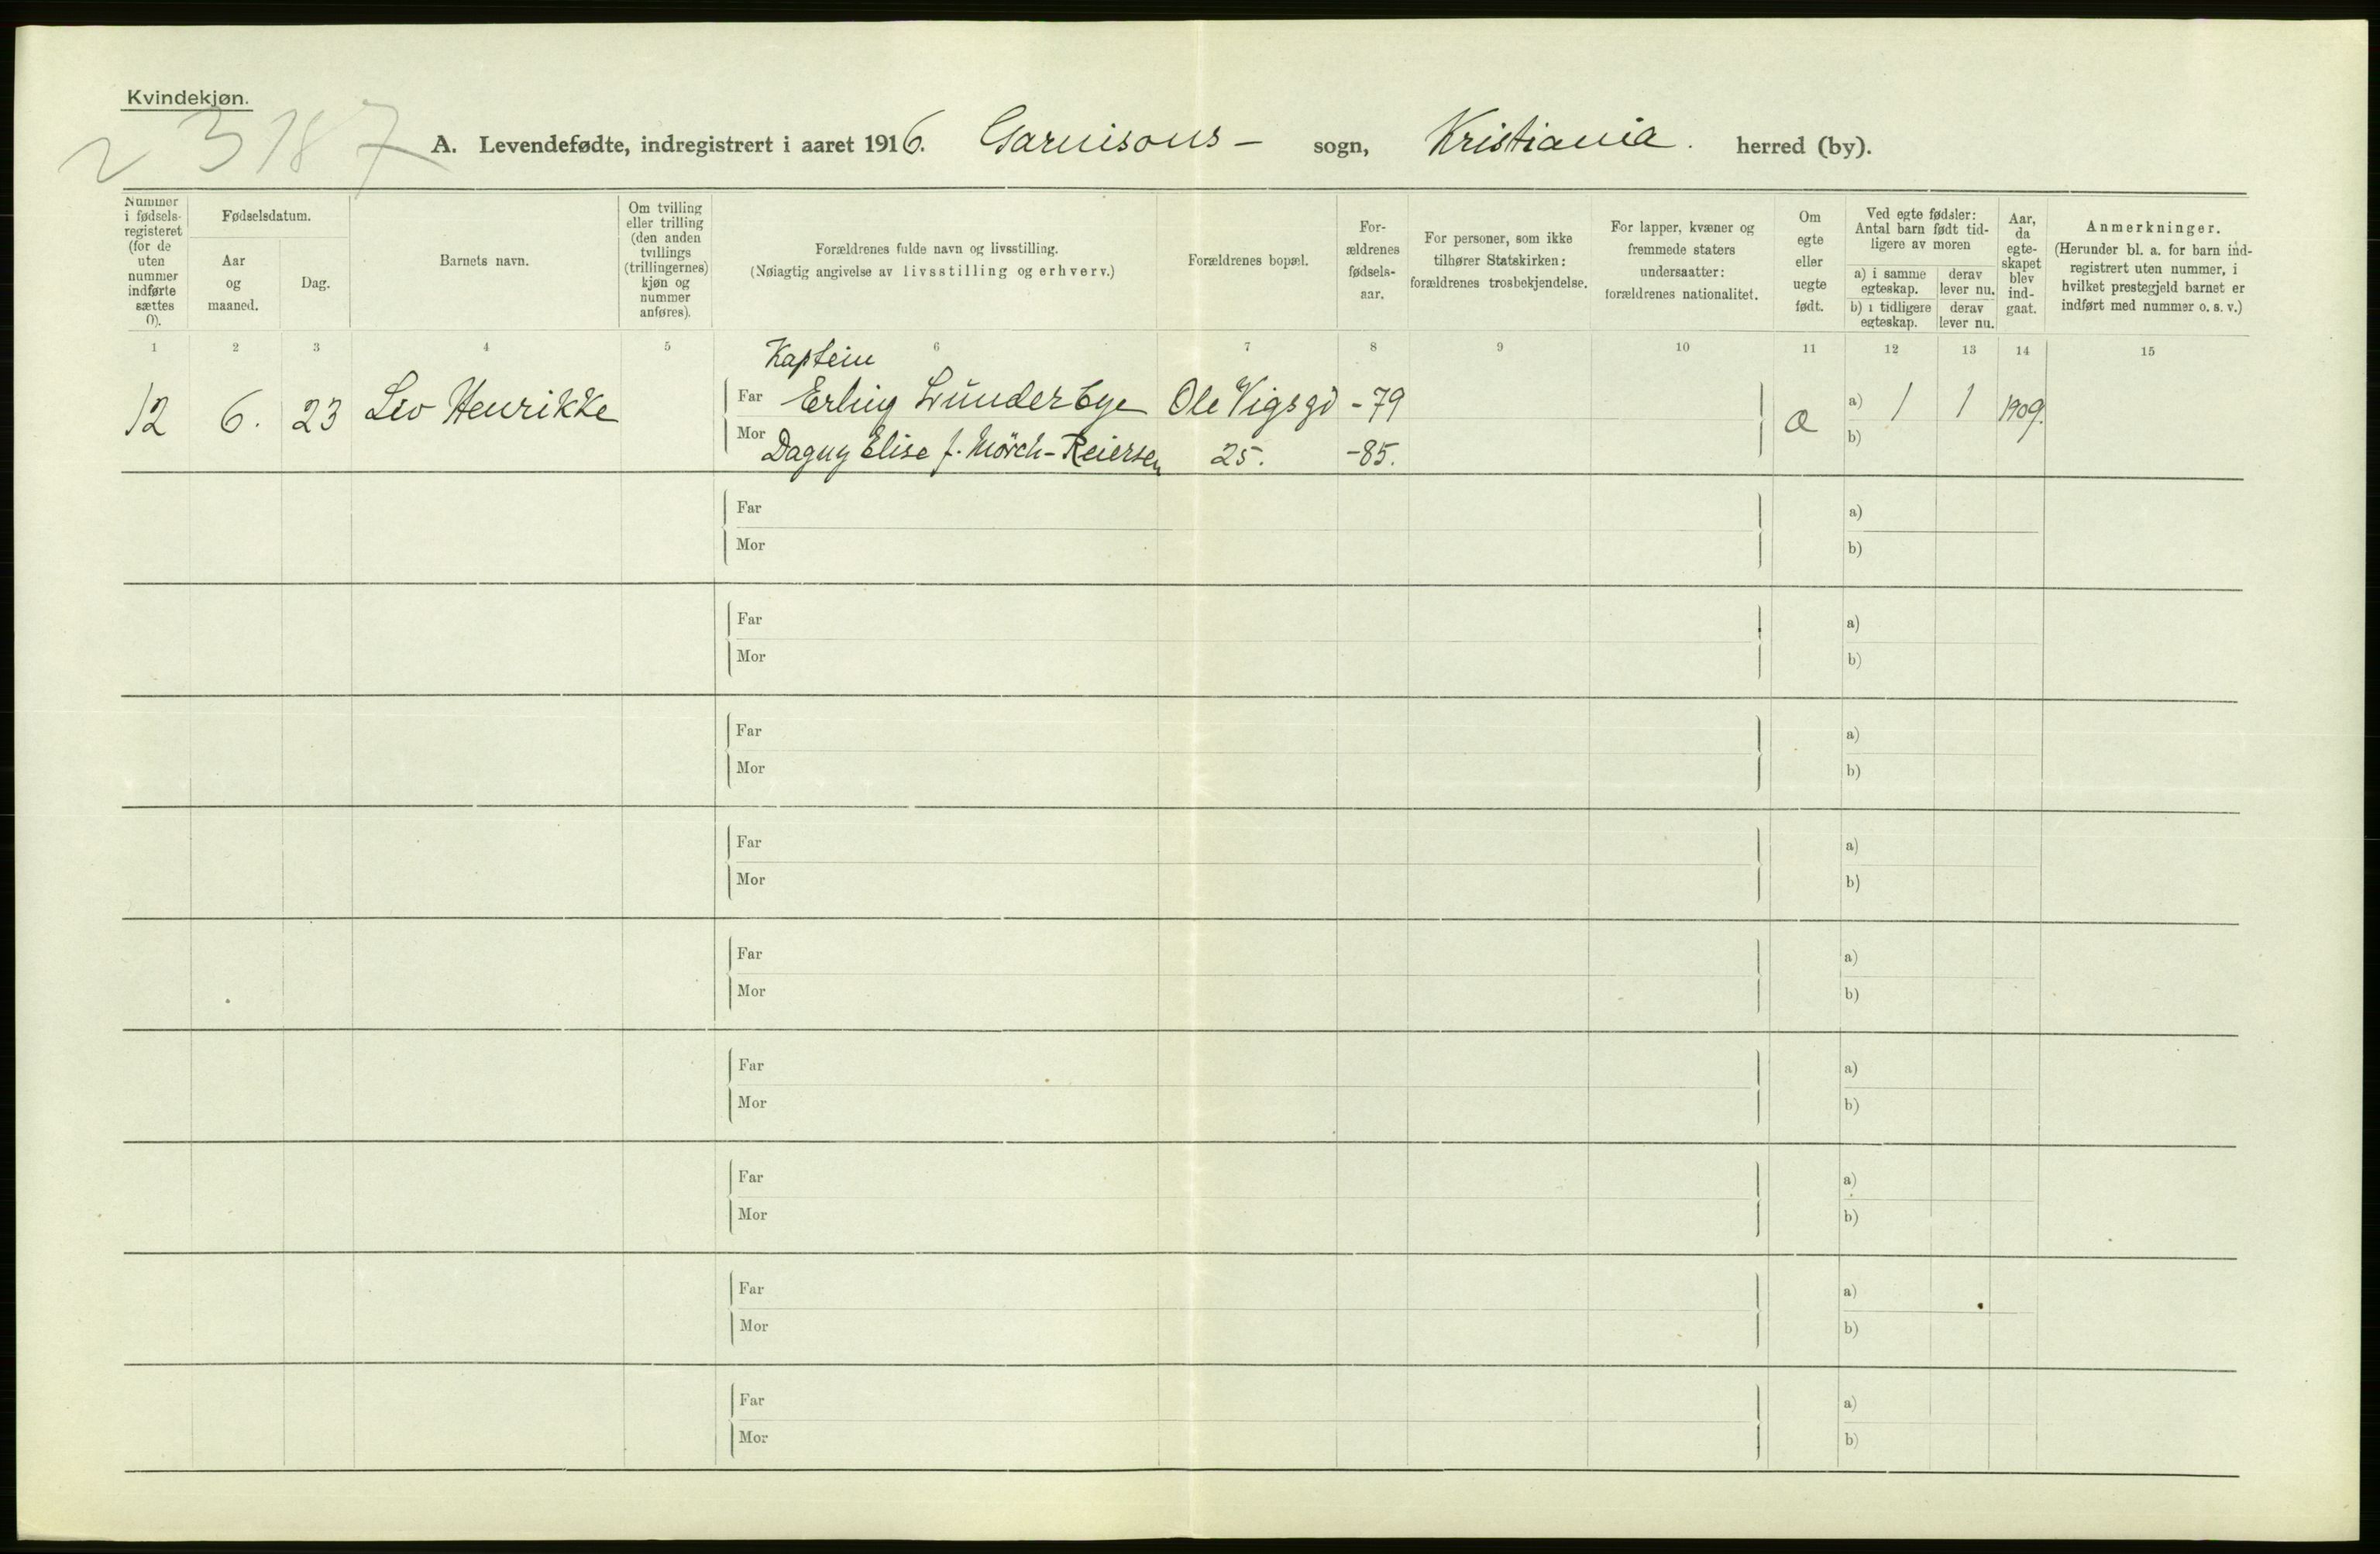 Kvindekjøn.
3187
A. Levendefødte, indregistrert i aaret 1916. Garnisons- sogn, Kristiania. herred (by).
Nummer i fødselsregisteret (for de uten nummer indførte sættes 0).
Fødselsdatum.
Aar og maaned.
Dag.
Barnets navn.
Om tvilling eller trilling (den anden tvillings (trillingernes) kjøn og nummer anføres).
Forældrenes fulde navn og livsstilling.
(Nøiagtig angivelse av livsstilling og erhverv.)
Forældrenes bopæl.
Forældrenes fødselsaar.
For personer, som ikke tilhører Statskirken: forældrenes trosbekjendelse.
For lapper, kvæner og fremmede staters undersaatter: forældrenes nationalitet.
Om egte eller uegte født.
Ved egte fødsler: Antal barn født tidligere av moren
a) i samme egteskap.
derav lever nu.
b) i tidligere egteskap.
derav lever nu.
Aar, da egteskapet blev indgaat.
Anmerkninger.
(Herunder bl. a. for barn indregistrert uten nummer, i hvilket prestegjeld barnet er indført med nummer o. s. v.)
1 2 3 4 5 6 7 8 9 10 11 12 13 14 15
Kaptein
12 6. 23 Henrikke Far Erling Lunder Bye Ole Vigsgd -79 a) 1 1 1909.
Mor Dagny Elise f. Mörch-Reiersen 25. -85. b)
Far a)
Mor b)
Far a)
Mor b)
Far a)
Mor b)
Far a)
Mor b)
Far a)
Mor b)
Far a)
Mor b)
Far a)
Mor b)
Far a)
Mor b)
Far a)
Mor b)